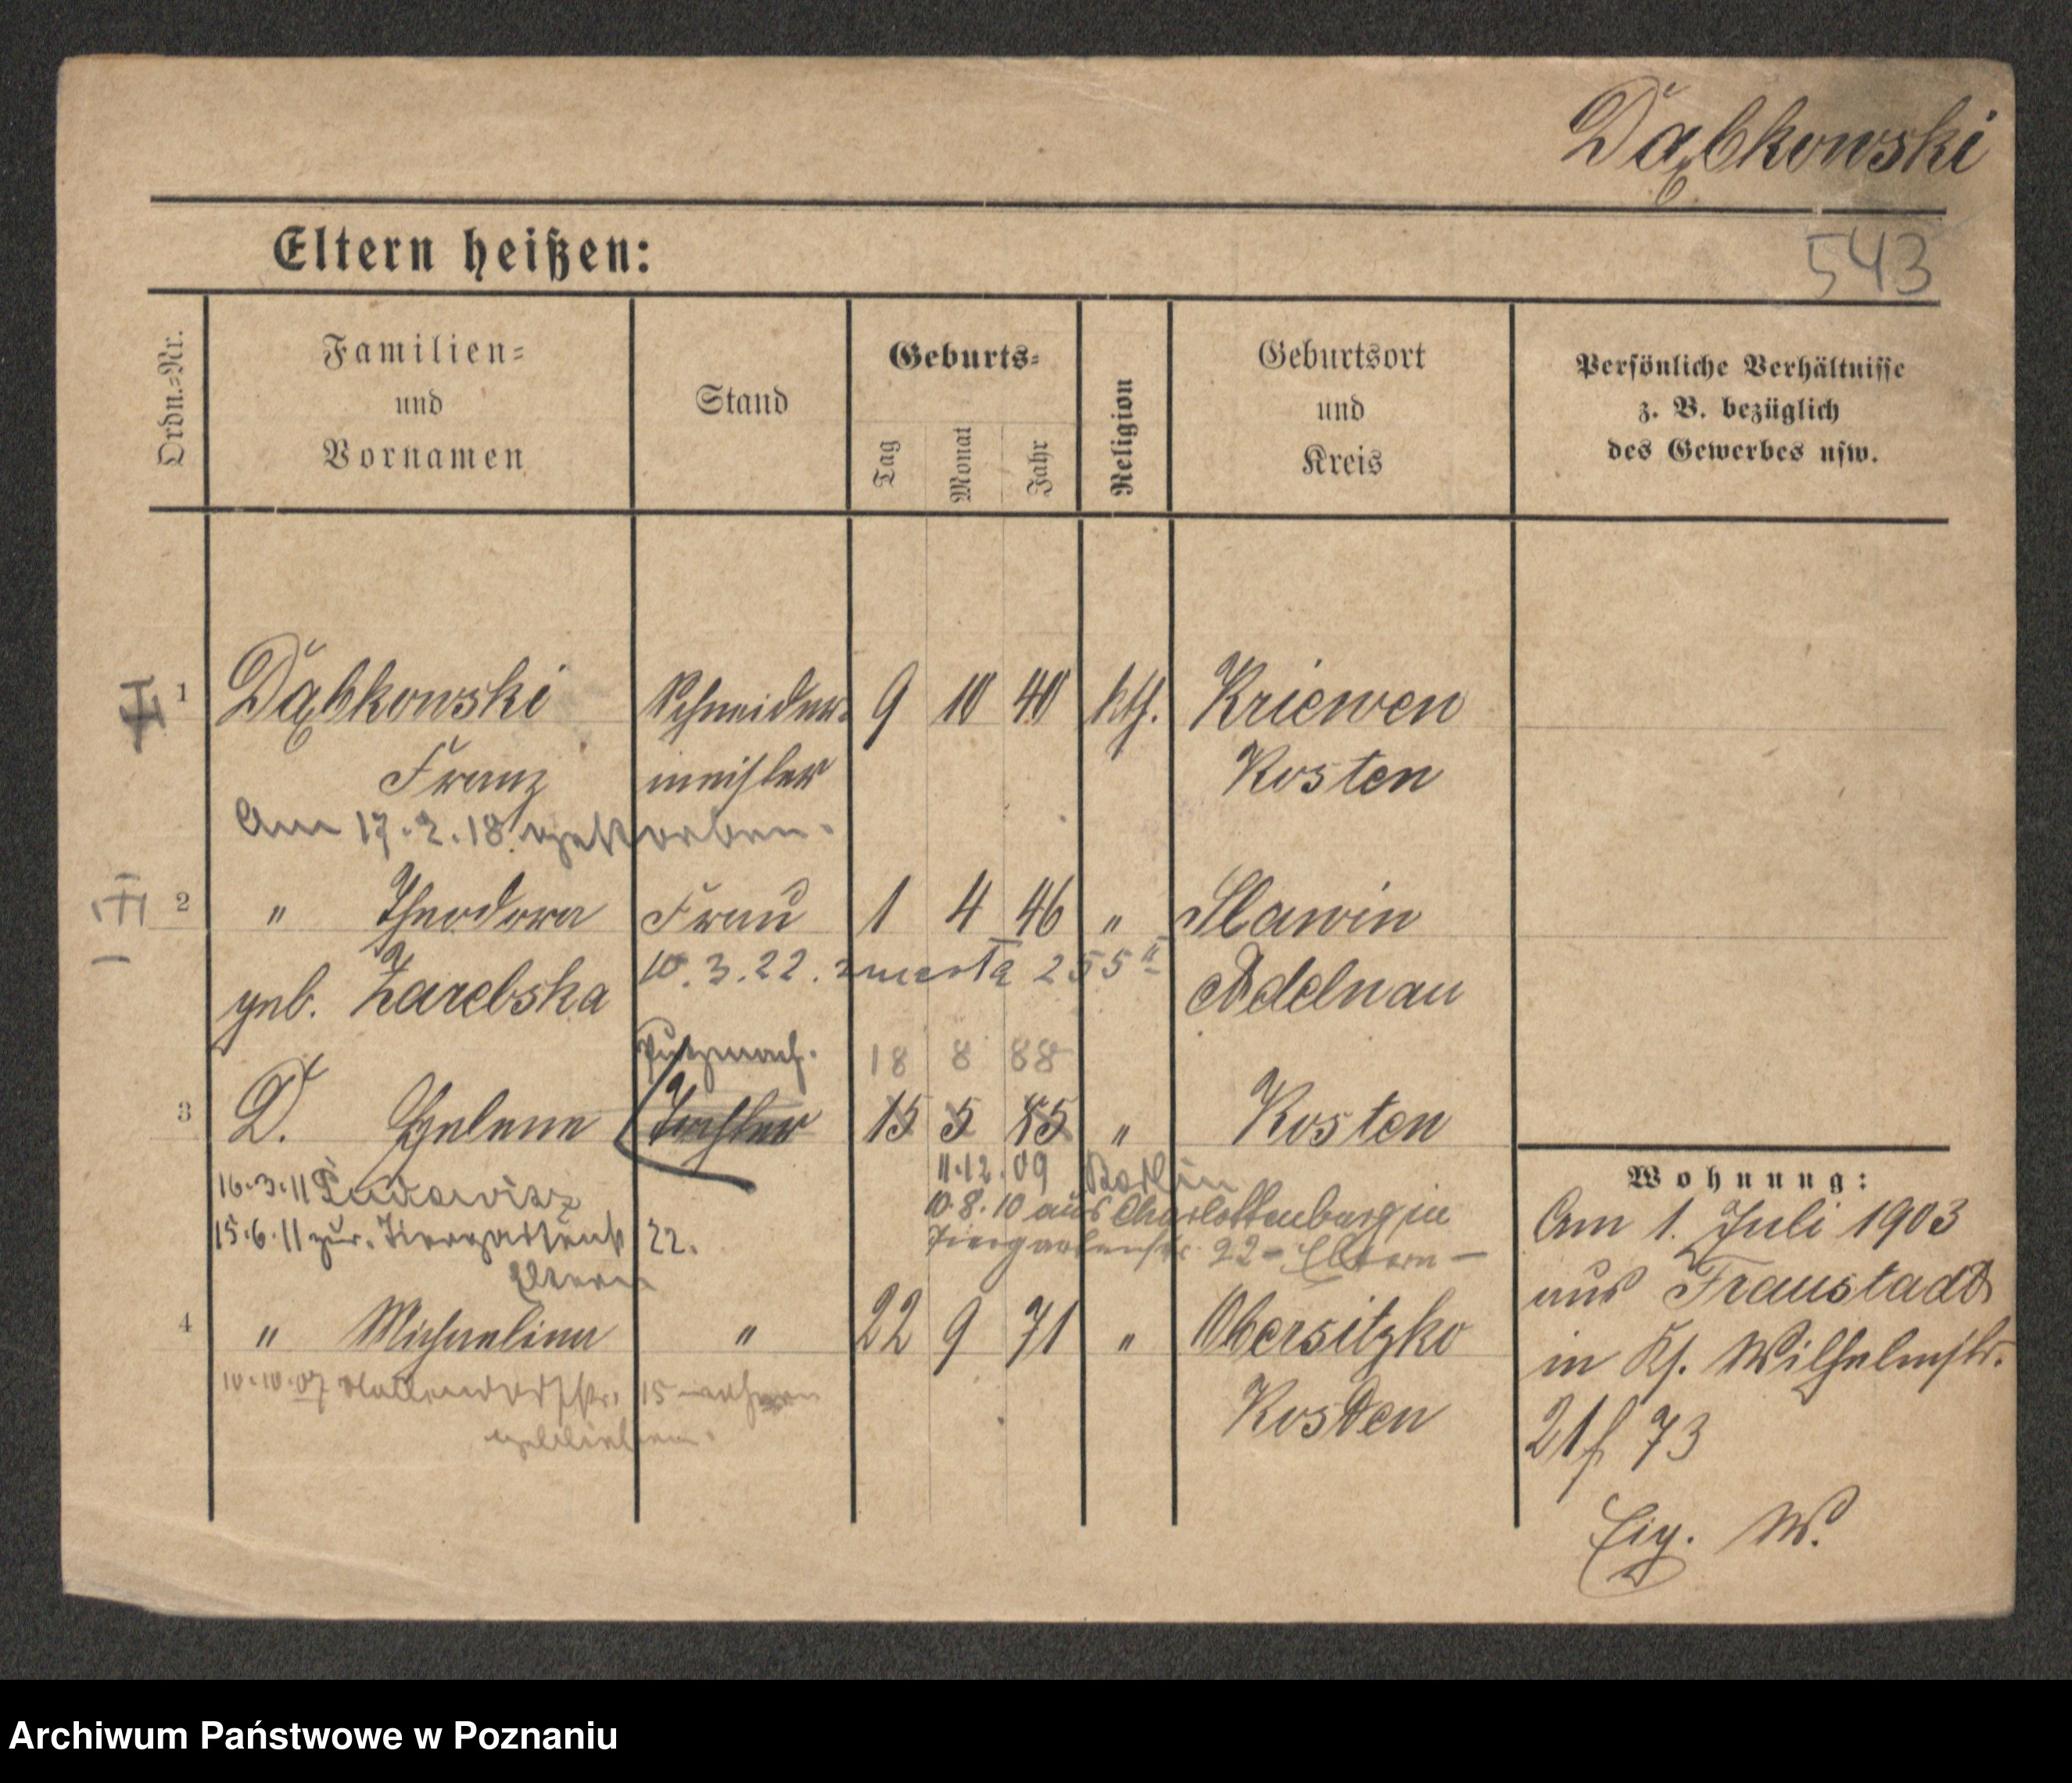 Dąbkowski
Eltern heißen:
543
Ordn.=Nr.
Familien=
und
Vornamen
Stand
Geburts=
Tag
Monat
Jahr
Religion
Geburtsort
und
Kreis
Persönliche Verhältnisse
z. B. bezüglich
des Gewerbes usw.
1 Dąbkowski Schneider= 9 10 40 kth. Kriewen
Franz meister Kosten
Am 17.2.18 gestorben.
2 " Theodora Frau 1 4 46 " Slawin
10.3.22. zmarła 255 II
geb. Zarebska Adelnau
Putzmach. 18 8 88
3 D. Helene Tochter 15 5 85 " Kosten
11.12.09 Berlin
16.3.11
10.8.10 aus Charlottenburg in
15.6.11 zur. Tiergartenst 22.
Tiergartenstr. 22 - Eltern -
Eltern
4 " Michaelina " 22 9 71 " Obersitzko
10.10.07 15
Kosten
geblieben.
Wohnung:
Am 1. Juli 1903
aus Fraustadt
in Kl. Wilhelmstr.
21 f 73
Eig. W.
Archiwum Państwowe w Poznaniu